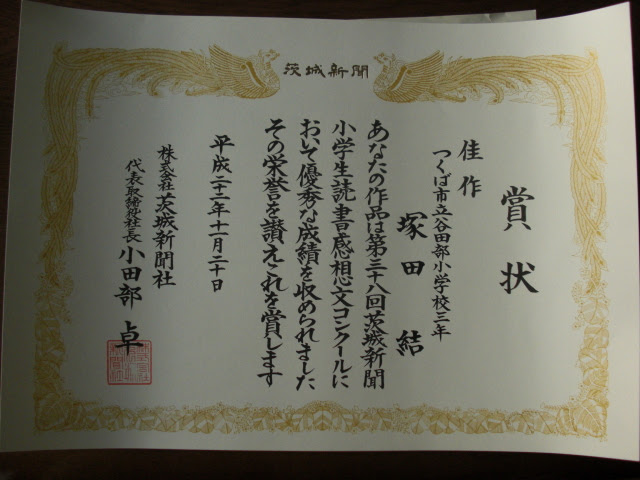 茨城新聞
賞状
佳作
つくば市立谷田部小学校三年
塚田結
あなたの作品は第三十八回茨城新聞
小学生読書感想文コンクールに
おいて優秀な成績を収められました
その栄誉を讃えこれを賞します
平成二十二年十一月二十日
株式会社茨城新聞社
代表取締役社長小田部卓